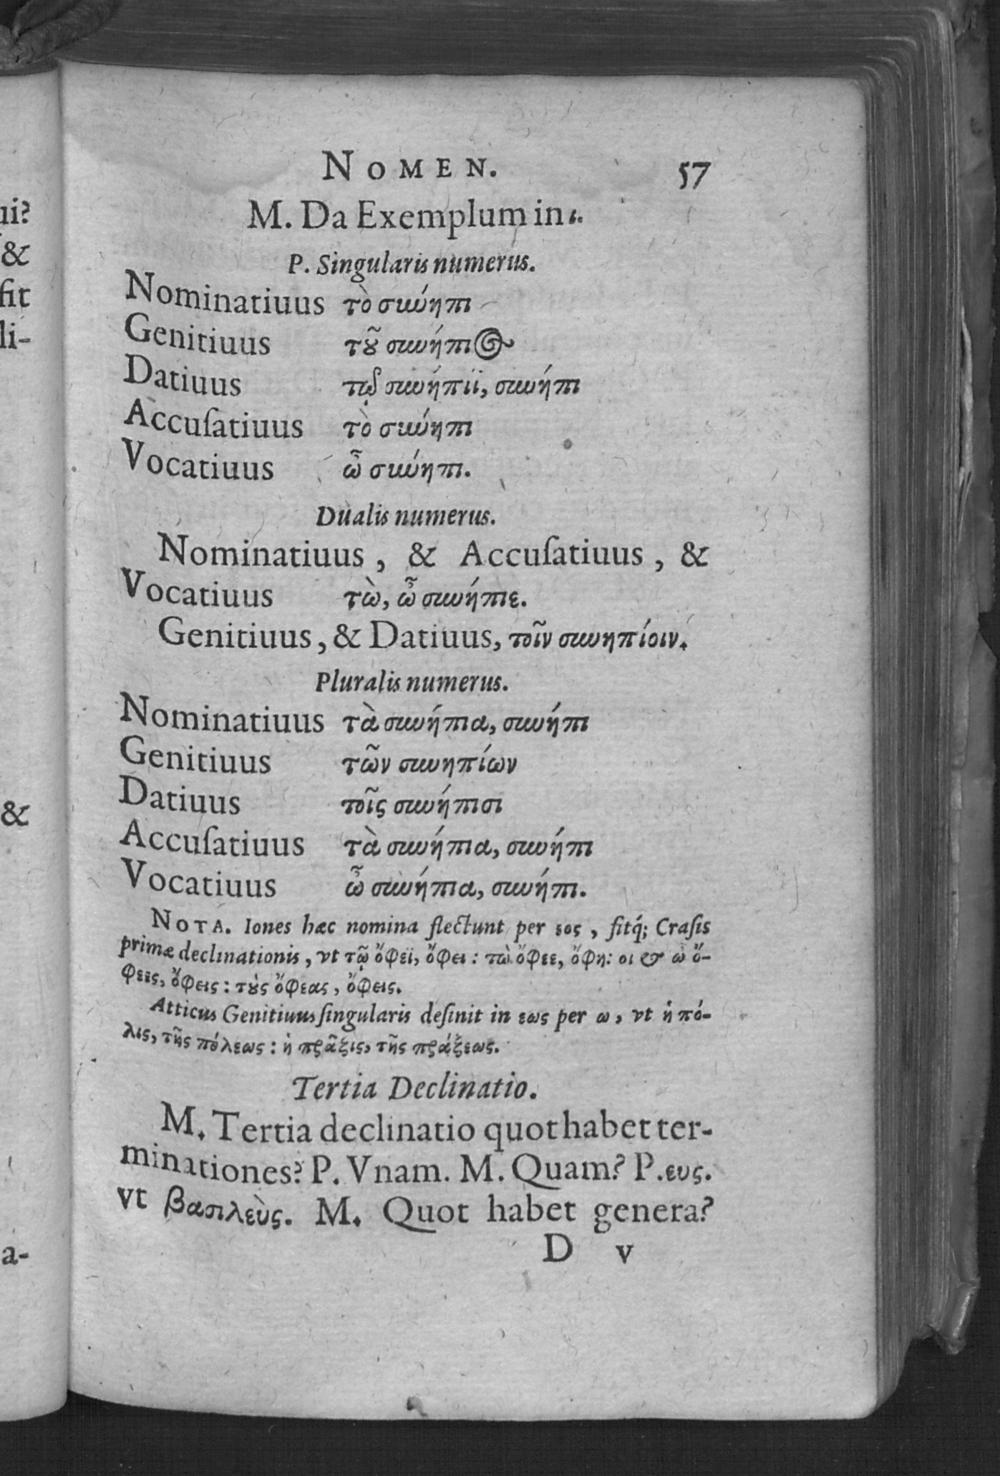 NOMEN. 57
M. Da Exemplum in ι.
P. Singularis numerus.
Nominatiuus τὸ σίνηπι
Genitiuus τοῦ σινήπιος
Datiuus τῷ σινήπιϊ, σινήπι
Accuſatiuus τὸ σίνηπι
Vocatiuus ὦ σίνηπι.
Dualis numerus.
Nominatiuus, & Accuſatiuus, &
Vocatiuus τὼ, ὦ σινήπιε.
Genitiuus, & Datiuus, τοῖν σινηπίοιν.
Pluralis numerus.
Nominatiuus τὰ σινήπια, σινήπι
Genitiuus τῶν σινηπίων
Datiuus τοῖς σινήπισι
Accuſatiuus τὰ σινήπια, σινήπι
Vocatiuus ὦ σινήπια, σινήπι.
NOTA. Iones hæc nomina flectunt per εος, fitq́; Craſis
primæ declinationis, vt τῷ ὄφεϊ, ὄφει: τὼ ὄφεε, ὄφη: οι & ὦ ὄ-
φεες, ὄφεις: τοὺς ὄφεας, ὄφεις.
Atticus Genitiuus ſingularis deſinit in εως per ω, vt ἡ πό-
λις, τῆς πόλεως: ἡ πρᾶξις, τῆς πράξεως.
Tertia Declinatio.
M. Tertia declinatio quot habet ter-
minationes? P. Vnam. M. Quam? P. ευς.
vt βασιλεὺς. M. Quot habet genera?
D v
ui?
&
fit
li-
&
a-